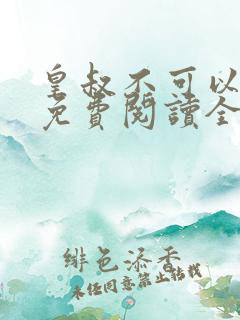 皇叔不可以
免費閱讀全
緋色添香
未經同意禁止轉載